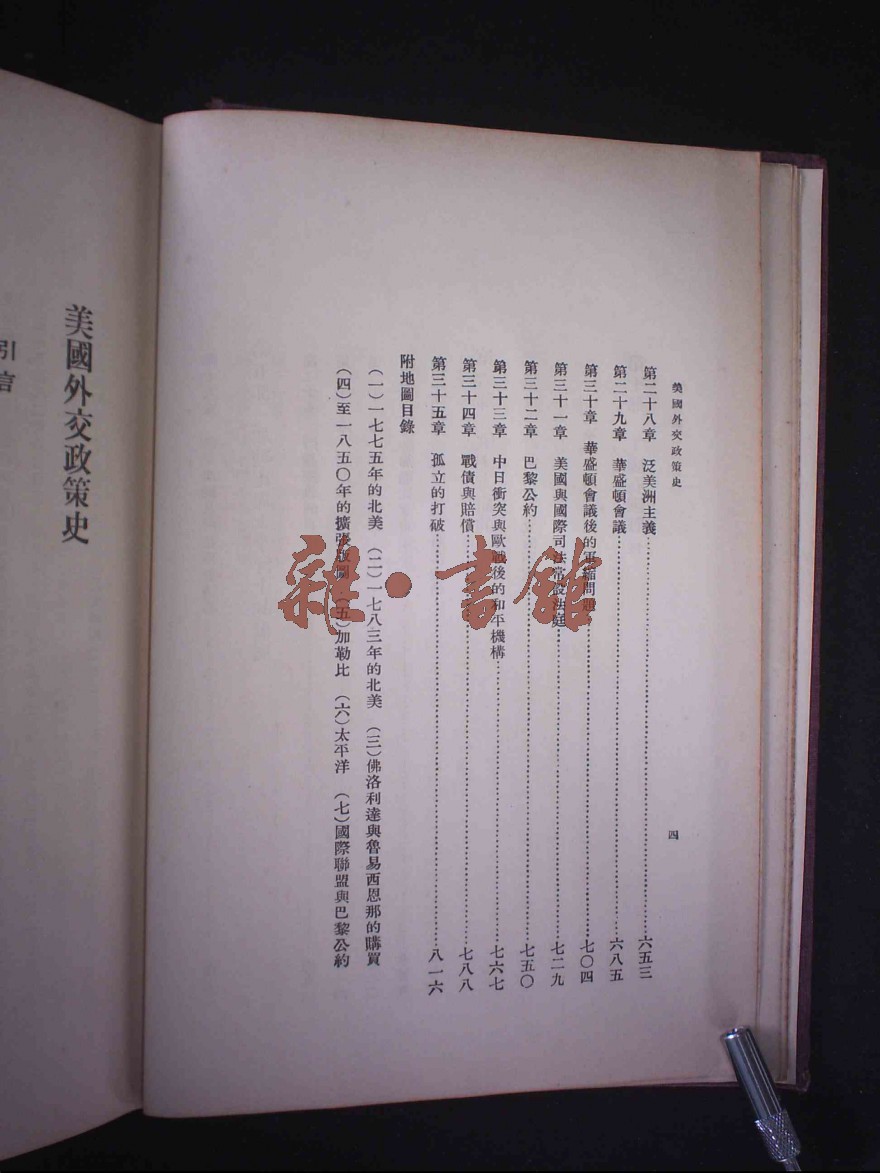 美國外交政策史
四
第二十八章 泛美洲主義……六五三
第二十九章 華盛頓會議……六八五
第三十章 華盛頓會議後的軍縮問題……七〇四
第三十一章 美國與國際司法常設法庭……七二九
第三十二章 巴黎公約……七五〇
第三十三章 中日衝突與歐戰後的和平機構……七六七
第三十四章 戰債與賠償……七八八
第三十五章 孤立的打破……八一六
附地圖目錄
(一)一七七五年的北美 (二)一七八三年的北美 (三)佛洛利達與魯易西恩那的購買
(四)至一八五〇年的擴張政圖 (五)加勒比 (六)太平洋 (七)國際聯盟與巴黎公約
美國外交政策史
引言
雜·書館